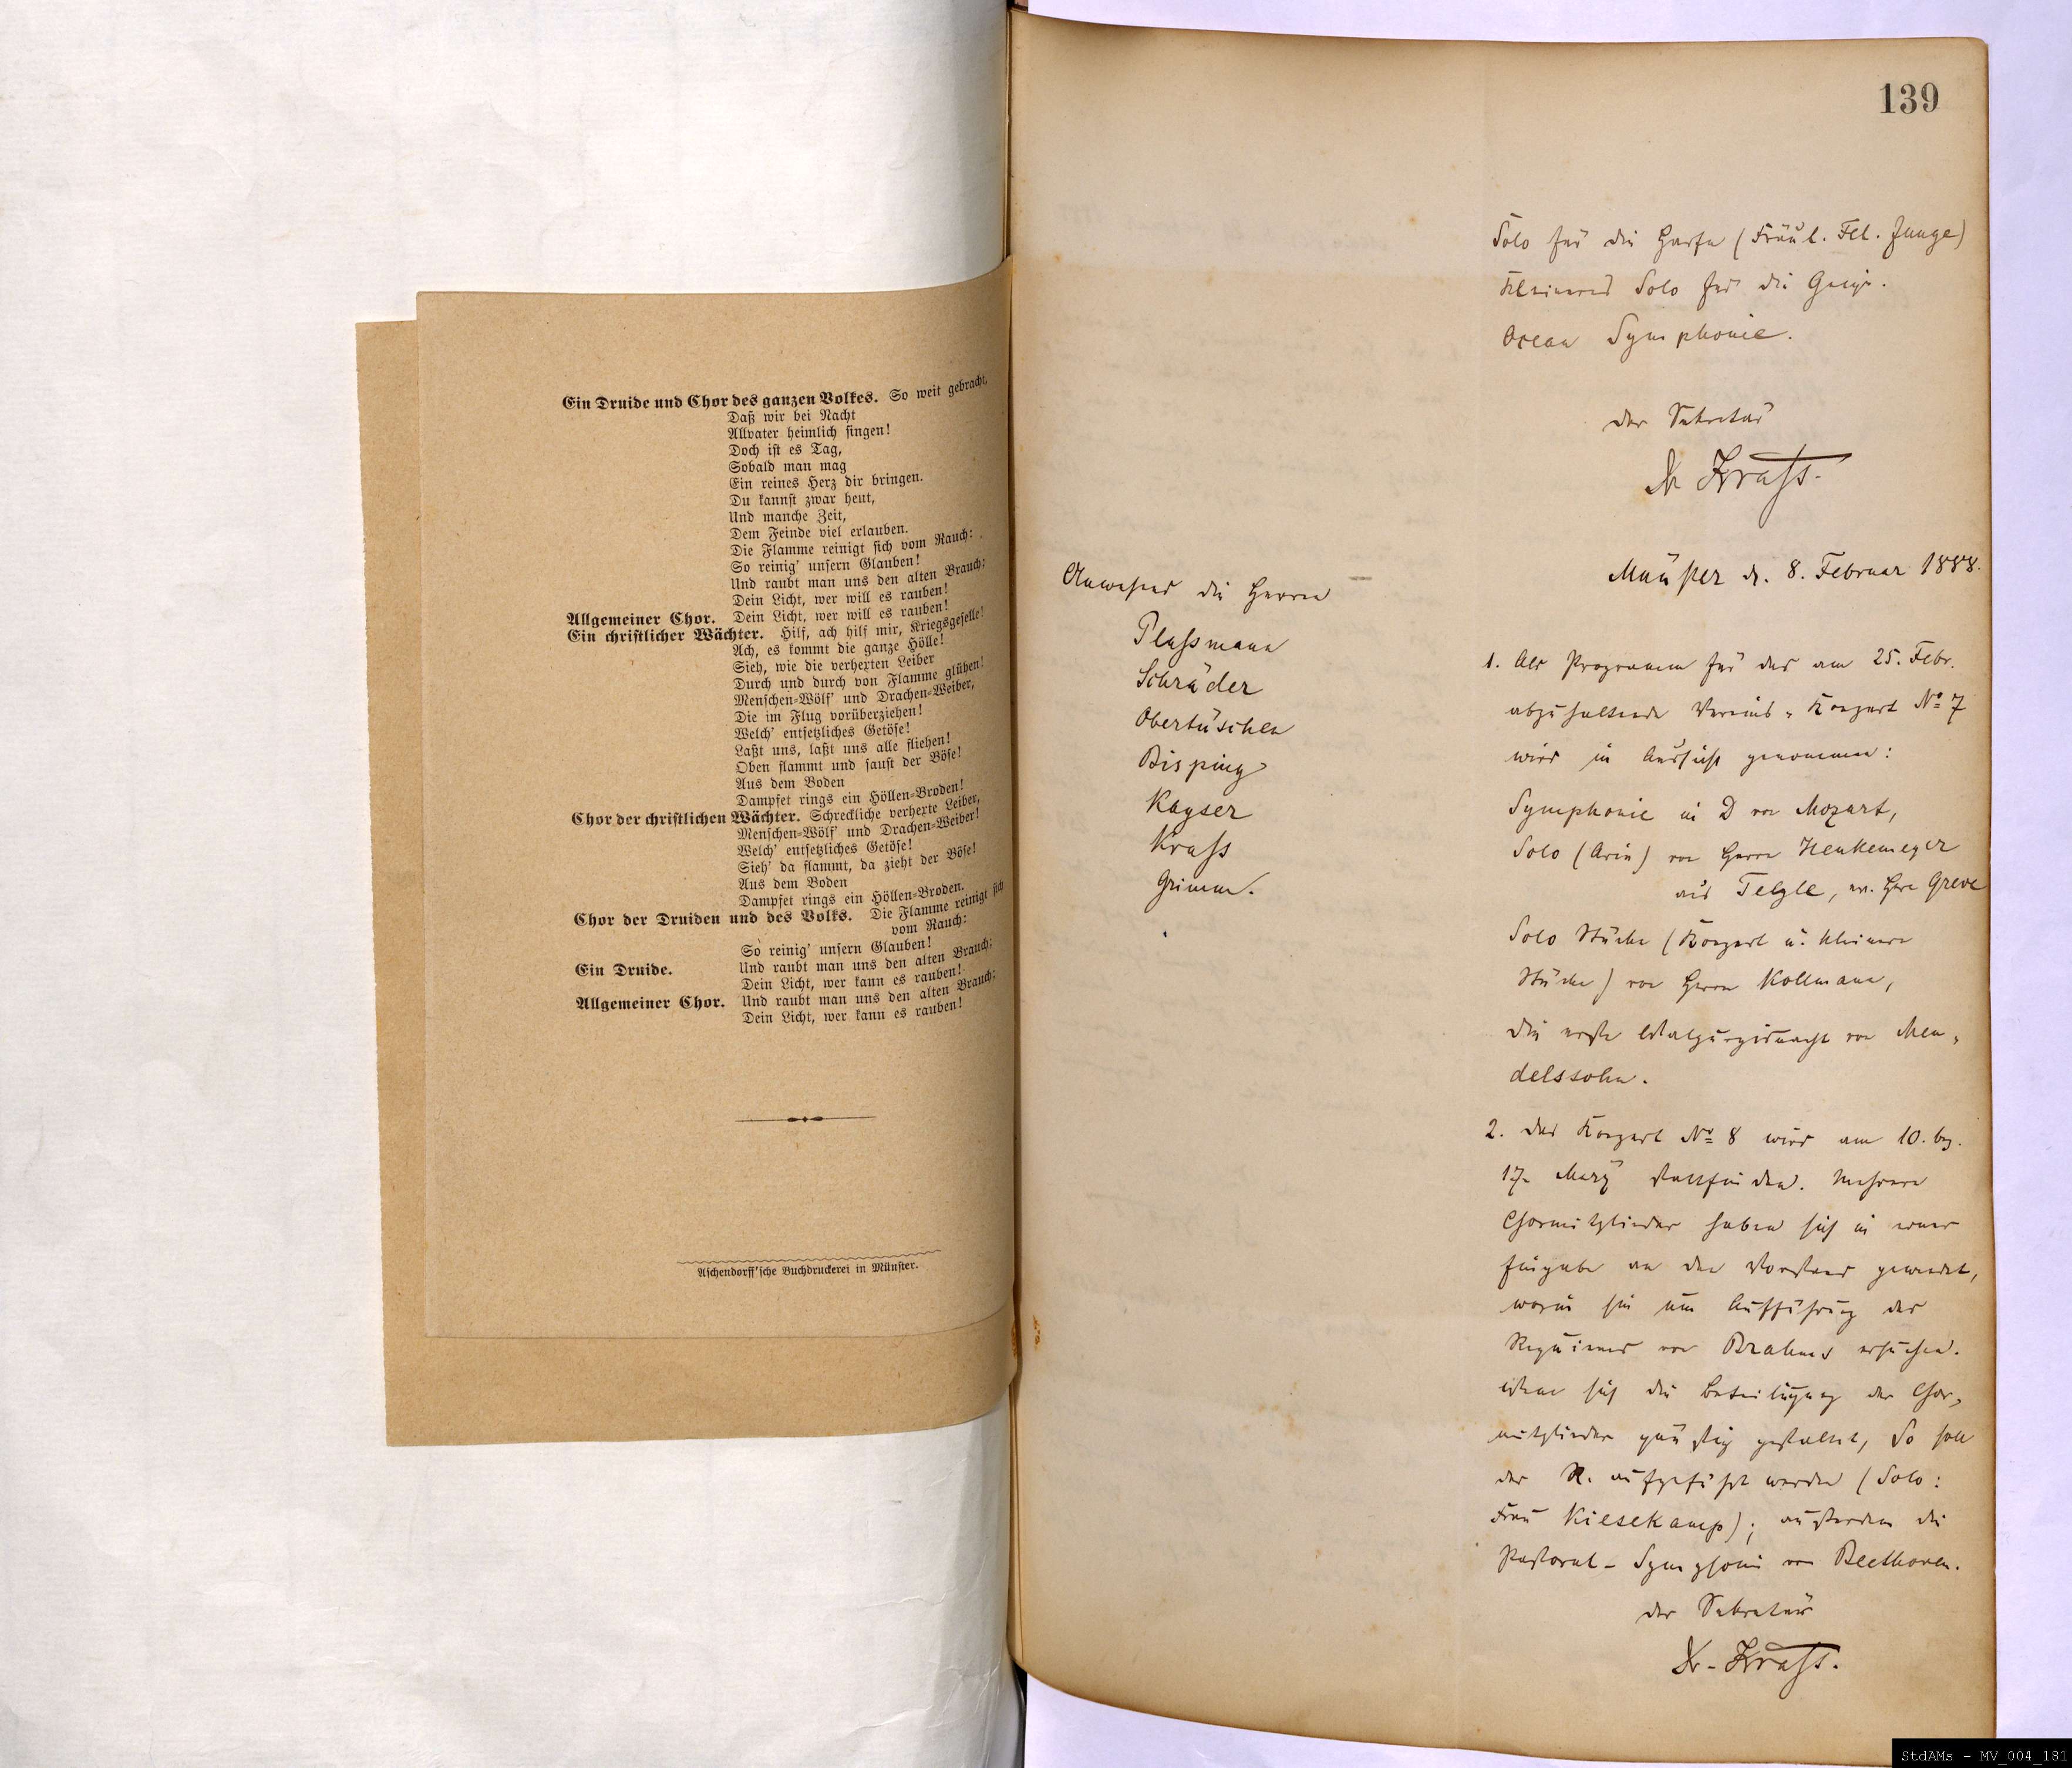 Ein Druide und Chor des ganzen Volkes. So weit gebracht,
Daß wir bei Nacht
Allvater heimlich singen!
Doch ist es Tag,
Sobald man mag
Ein reines Herz dir bringen.
Du kannst zwar heut,
Und manche Zeit,
Dem Feinde viel erlauben.
Die Flamme reinigt sich vom Rauch:
So reinig' unsern Glauben!
Und raubt man uns den alten Brauch;
Dein Licht, wer will es rauben!
Allgemeiner Chor. Dein Licht, wer will es rauben!
Ein christlicher Wächter. Hilf, ach hilf mir, Kriegsgeselle!
Ach, es kommt die ganze Hölle!
Sieh, wie die verhexten Leiber
Durch und durch von Flamme glühen!
Menschen-Wölf' und Drachen-Weiber,
Die im Flug vorüberziehen!
Welch' entsetzliches Getöse!
Laßt uns, laßt uns alle fliehen!
Oben flammt und saust der Böse!
Aus dem Boden
Dampfet rings ein Höllen-Broden!
Chor der christlichen Wächter. Schreckliche verhexte Leiber,
Menschen-Wölf' und Drachen-Weiber!
Welch' entsetzliches Getöse!
Sieh' da flammt, da zieht der Böse!
Aus dem Boden
Dampfet rings ein Höllen-Broden.
Chor der Druiden und des Volks. Die Flamme reinigt sich
vom Rauch:
So reinig' unsern Glauben!
Ein Druide. Und raubt man uns den alten Brauch;
Dein Licht, wer kann es rauben!
Allgemeiner Chor. Und raubt man uns den alten Brauch;
Dein Licht, wer kann es rauben!
Aschendorff'sche Buchdruckerei in Münster.
139
Solo für die Harfe (Fräul. Fel. Junge)
Kleineres Solo für die Geige.
Ocean Symphonie.
der Sekretär
Dr Krass.
Münster d. 8. Februar 1888.
Anwesend die Herren
Plassmann
Schräder
Obertüschen
Bisping
Kayser
Krass
Grimm.
1. Als Programm für das am 25. Febr.
abzuhaltende Vereins-Konzert No 7
wird in Aussicht genommen:
Symphonie in D von Mozart,
Solo (Arie) von Herrn Henkemeyer
aus Telgte, Greve
Solo Stücke (Konzert u. kleinere
Stücke) von Herrn Kollmann,
die erste Walpurgisnacht von Men-
delssohn.
2. Das Konzert No 8 wird am 10. bz.
17. März stattfinden. Mehrere
Chormitglieder haben sich in einer
Eingabe an den Vorstand gewendet,
worin sie um Aufführung des
Requiems von Brahms ersuchen.
Wenn sich die Beteiligung der Chor-
mitglieder günstig gestaltet, so soll
das R. aufgeführt werden (Solo:
Frau Kiesekamp); außerdem die
Pastoral-Symphonie von Beethoven.
der Sekretär
Dr. Krass.
StdAMs - MV_004_181